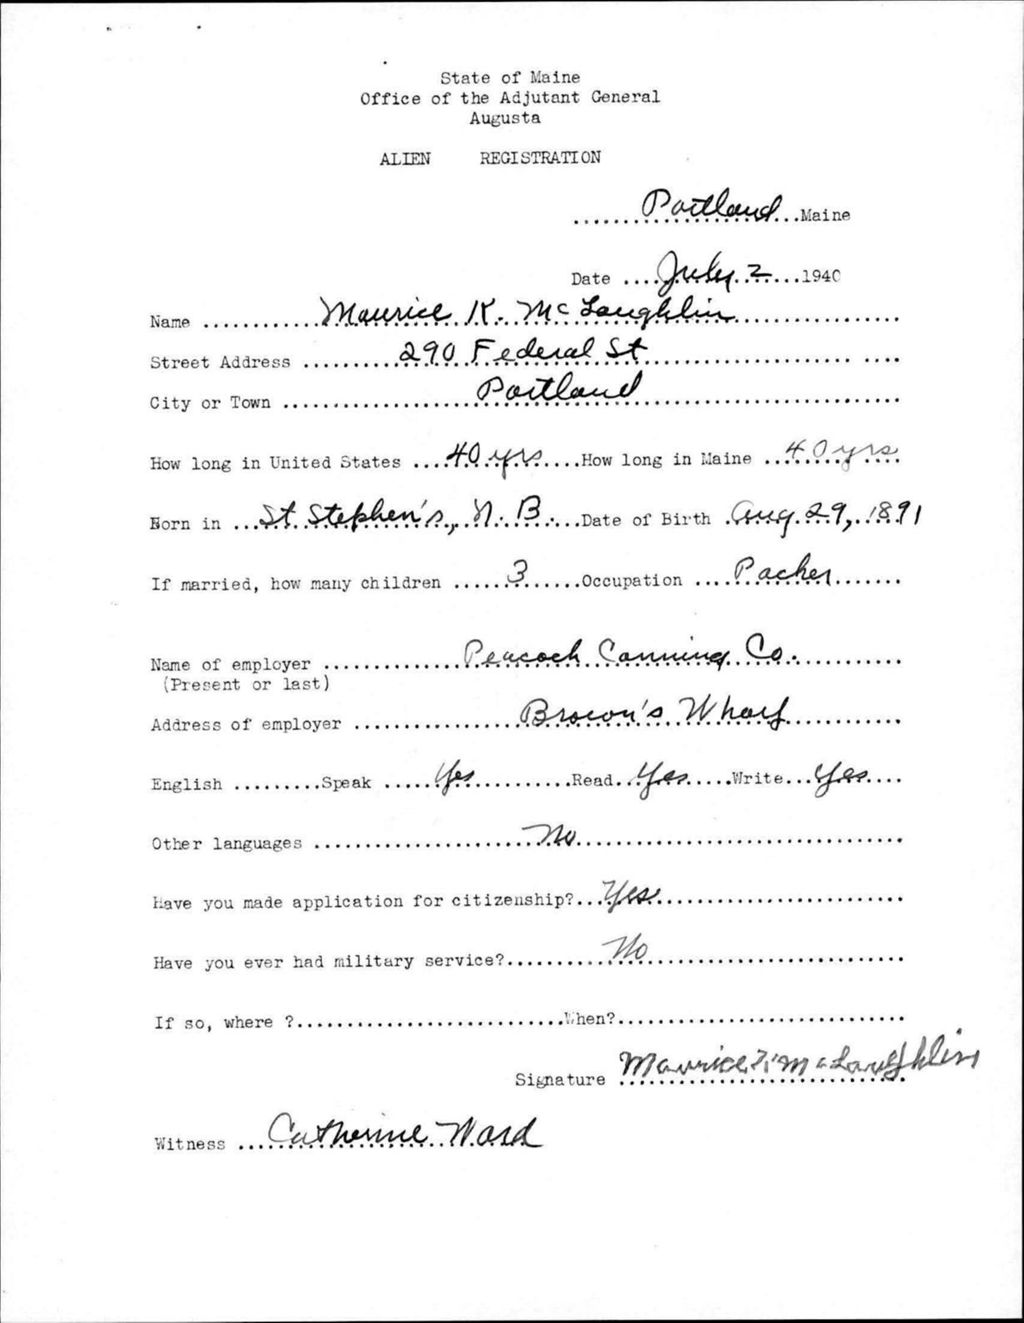 State of Maine
Office of the Adjutant General
Augusta
ALIEN REGISTRATION
.......Portland...Maine
Date ....July 2......1940
Name ............Maurice K. McLaughlin..................
Street Address ..........290 Federal St........................ ....
City or Town ......................Portland...............................
How long in United States ....40 yrs.....How long in Maine ...40 yrs.
Born in ...St. Stephen's, N. B.....Date of Birth .Aug. 29, 1891
If married, how many children ......3......Occupation ....Packer.......
Name of employer ................Peacock Canning Co.............
(Present or last)
Address of employer ...................Brown's Wharf.............
English .........Speak .....Yes............Read..Yes.....Write...Yes....
Other languages ......................No.................................
Have you made application for citizenship?...Yes........................
Have you ever had military service?..........No.........................
If so, where ?..........................When?............................
Signature Maurice McLaughlin
Witness ...Catherine Ward